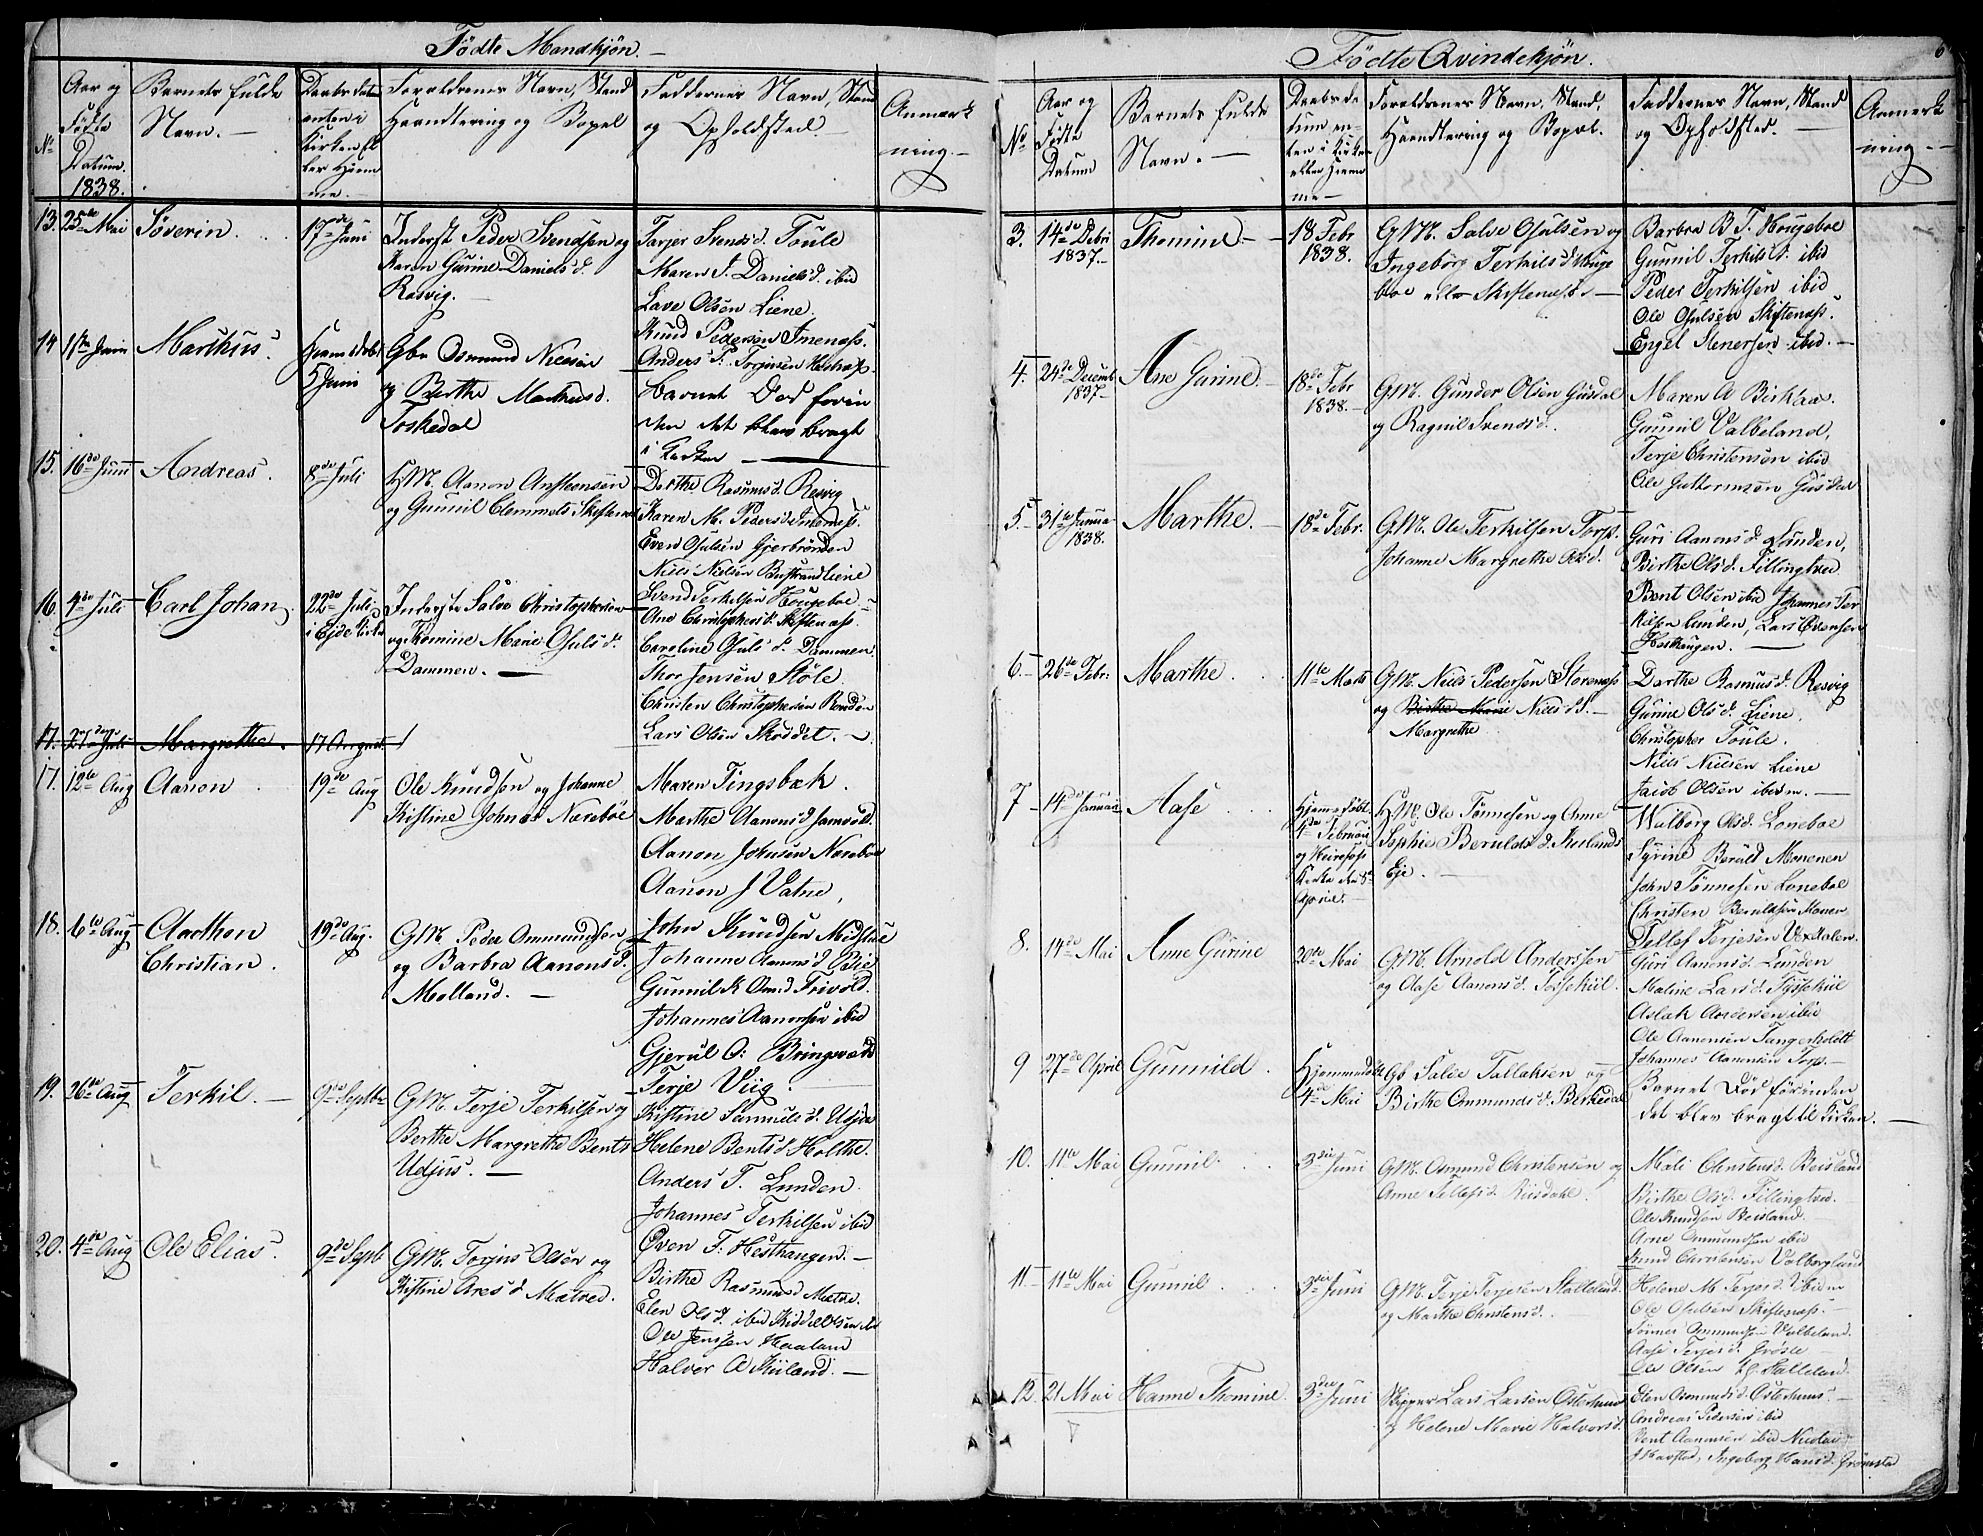 Födte Mandkjön. —
Aar og
Födte
Datum.
1838.
No
Barnets fulde
Navn. —
Daabs Datum
enten i
Kirken el
ler Hjem
me.
Forældrenes Navn, Stand
Haandtering og Bopæl
Faddernes Navn, Stand
og Opholdsted. —
Anmærk
ning. —
13. 25de Mai Söverin. 17de Juni
Inderst Peder Svendsen og
Karen Gurine Daniels d.
Rosvig. —
Tarjer Svends d. Toule
Maren J. Daniels d. ibid
Lave Olsen Liene.
Knud Pedersen Imenæss.
Anders T. Torjusen
14 1ste Juni Markus. Hjemmedöbt
5 Juni
Gbr Osmund Nielsen
og Berthe Markus d.
Toskedal
Barnet Död forin
den det blev bragt
i Kirken —
15. 16de Juni Andreas. 8de Juli
HM. Aanon Anstensen
og Gunnil Clemmets Skiftenes
Dorthe Rasmus d. Resvig
Karen M. Peders d. Imenæss.
Even Osulsen Gjerbrönden
Niels Nielsen Liene
16. 4de Juli Carl Johan. 22de Juli
i Eide Kirke
Inderste Salve Christophersen
og Thomine Marie Osuls d.
Dammen. —
Svend Terkilsen Hougeboe
Ane Christophers d. Skiftenæss.
Caroline Osuls d. Dammen.
Thor Jensen Stöle.
Christen Christophersen Rönden
Lars Olsen Skoddet. —
17. 27de Juli Margrethe. 17 August
17. 12te Aug Aanon. 19de Aug
Ole Knudsen og Johanne
Kistine Johns d. Næreböe
Maren Tingsbæk.
Marthe Aanons d.
Aanon Johnsen Næreböe
Aanon J Vatne,
18. 6te Aug Aadthon
Christian. 19de Aug.
GM. Peder Ommundsen
og Barbra Aanons d.
Molland. —
John Knudsen
Johanne Aanons d. ibid
Gunnil K Osmd Frivold.
Johannes Aanonsen ibid
Gjerul O: Bringsværd
19. 26de Aug Terkil. — 9de Septbr
GM. Terje Terkilsen og
Berthe Margrethe Bents
Udjus. —
Terje Viig.
Kistine Samuels d. Udjus
Helene Bents d. Holthe.
Anders T. Lunden.
Johannes Terkilsen ibid
20. 4de Aug Ole Elias. 9de Septb
GM. Torjus Olsen og
Kistine Ares d. Mætved.
Oven T. Hesthaugen. —
Birthe Rasmus d Mætve.
Elen Ols d. ibid
Ole Jenssen Haaland
Halver A Kiiland. —
Födte Qvindekjön.
6
No
Aar og
Födte
Datum
Barnets fulde
Navn. —
Daabs Da
tum en
ten i Kirken
eller Hjem
me —
Forældrenes Navn, Stand,
Haandtering og Bopæl.
Faddernes Navn, Stand
og Opholdsted. —
Anmerk
ning. —
3. 14de Debr
1837. — Thomine. — 18 Febr
1838.
GM. Salve Osulsen og
Ingeborg Terkils d Houge
boe eller Skiftenæss. —
Barbra B. T. Hougeboe
Gunnil Terkils d. ibid
Peder Terkilsen ibid
Ole Osulsen Skiftenæss.
Engel Stenersen ibid. —
4. 24de Decemb
1837. — Ane Gurine. — 18de Febr
1838. —
GM. Gunder Olsen Gusdal
og Ragnil Svends d.
Maren A Birklaa.
Gunnil Valbeland,
Terje Christensen ibid
Ole Guttormsen Gusdal
5. — 31te Janua
1838. Marthe. — 18de Febr.
GM. Ole Terkilsen Torp.
Johanne Margrethe Ols d.
Guri Aanons d. Lunden,
Birthe Ols d. Fillingtved
Bent Olsen ibid Johannes Ter
kilsen Lunden, Lars Evensen
Hesthaugen. —
6. — 26de Febr. Marthe. 11te Marts
GM. Niels Pedersen Storenæss
og Birthe Marie Niels d. —
Margrethe
Dorthe Rasmus d. Resvig
Gurine Ols d. Liene.
Christopher Toule.
Niels Nielsen Liene
Jacob Olsen ibidm. —
7 — 14de Januar Aase Hjemmedöbt
4de Februar
og Heirefoss
Kirke den 8de
April. —
HM. Ole Tönnesen og Anne
Sophie Beruls d. Kurlands
Eje. —
Walborg Ols d. Loneboe
Syrine Beruld Monenen
John Tönnesen Loneboe
Christen Beruldsen Monen
Tellef Terjesen Vextalen.
8. 14de Mai Anne Gurine 20de Mai
GM. Arnold Anderssen
og Aase Aanons d. Tossekiil.
Guri Aanons d. Lunden
Maline Lars d. Tyssekiil
Aslak Andersen ibid
Ole Aanonsen Tungerholdt
Johannes Aanonsen Torp. —
9 27de April Gunnild. Hjemmedöbt
4de Mai
Gb Salve Tallaksen og
Birthe Ommunds d. Berkedal
Barnet Död förinden
det blev bragt til Kirken. —
10. 11te Mai Gunnil. 3die Juni
GM. Osmund Christensen og
Anne Tellefs d. Riisdahl.
Mali Christens d. Beisland
Birthe Ols d. Fillingtved.
Ole Knudsen Beisland.
Arne Ommundsen ibid
Knud Christensen Valborgland
11 — 11te Mai Gunnil 3die Juni
GM. Terje Terjesen Stalleland.
og Marthe Christens d. .
Helene M Terjes d. ibidm
Ole Osulsen Skiftenæss. —
Tönnes Ommundsen Valbeland.
Aase Terjes d. Gröste —
Ole Olsen Stalleland.
12 21 Mai Hanne Thomine 3die Juni
Skipper Lars Larsen Osterhuus
og Helene Marie Halvors d.
Elen Osmunds d. Osterhuus —
Andreas Pedersen ibid
Bent Aanonsen ibid
Ingeborg Hans d. Grömstad